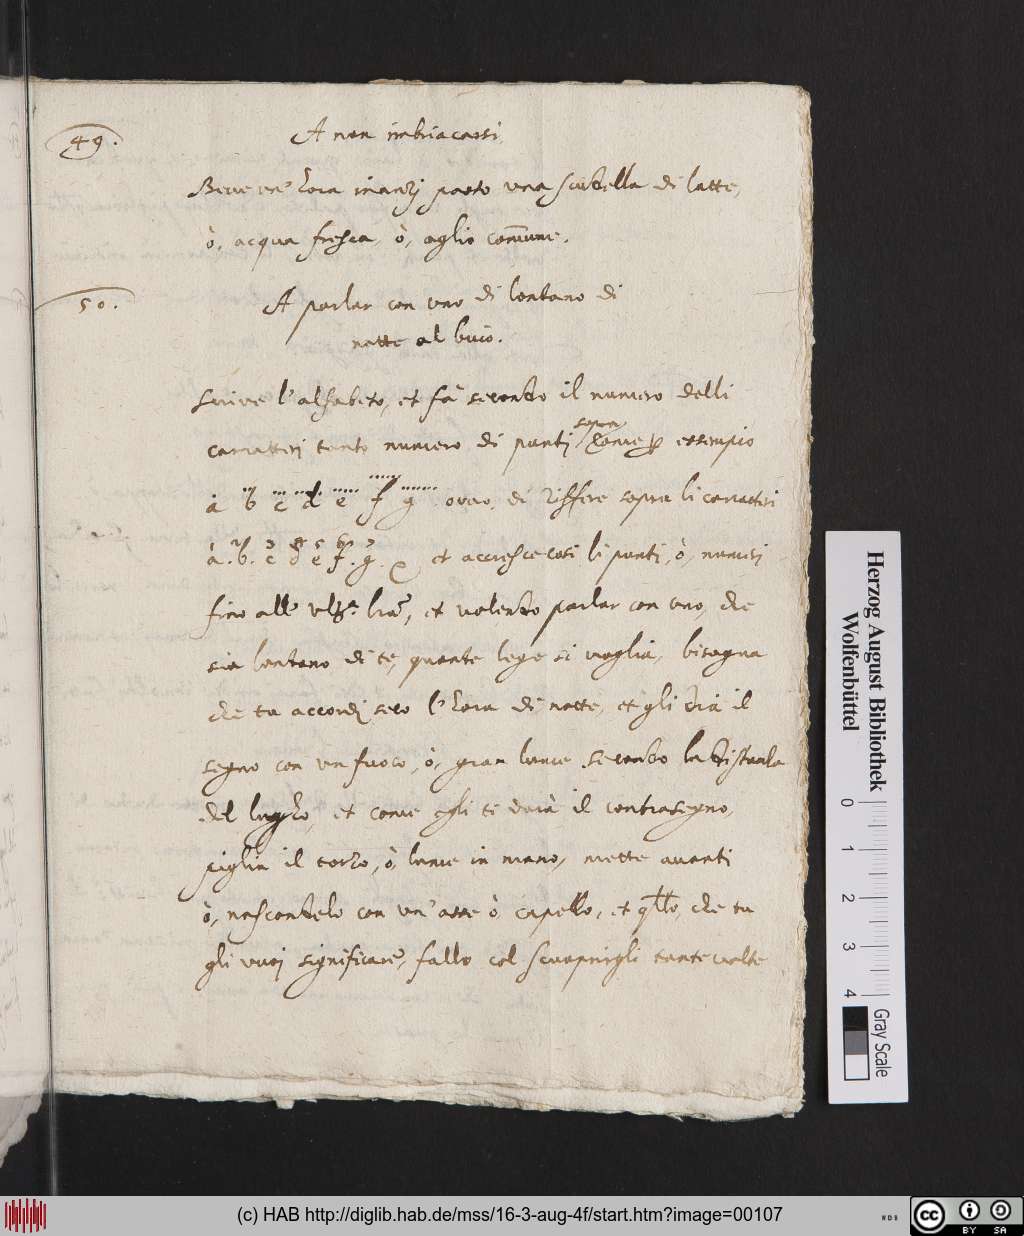 49.
A non imbriacarsi.
Beve un' hora inanzj pasto una scudella di latte,
ò, acqua fresca, ò, aglio comune.
50.
A parlar con uno di lontano di
notte al buio.
Scrive l'alfabeto, et fà secondo il numero delli
caratteri tanto numero di puntj sopra, come p essempio
a b c d e f g overo, di ziffere sopra li caratteri
1 2 3 4 5 6 7
a. b. c d e f. g. et accresce così li punti, ò, numeri
fino all' ult.ª lra, et volendo parlar con uno, che
sia lontano di te, quante lege si voglia, bisogna
che tu accordj seco l'hora di notte, et gli dia il
segno con un fuoco, ò, gran lume secondo la distanza
del luogho, et come egli ti darà il contrasegno,
piglia il torzo, ò, lume in mano, mette avanti
ò, nascondelo con un' asse ò, capello, et qllo, che tu
gli vuoj significare, fallo col scuoprirgli tante volte
Herzog August Bibliothek
Wolfenbüttel
0 1 2 3 4
Gray Scale
(c) HAB http://diglib.hab.de/mss/16-3-aug-4f/start.htm?image=00107
cc BY SA